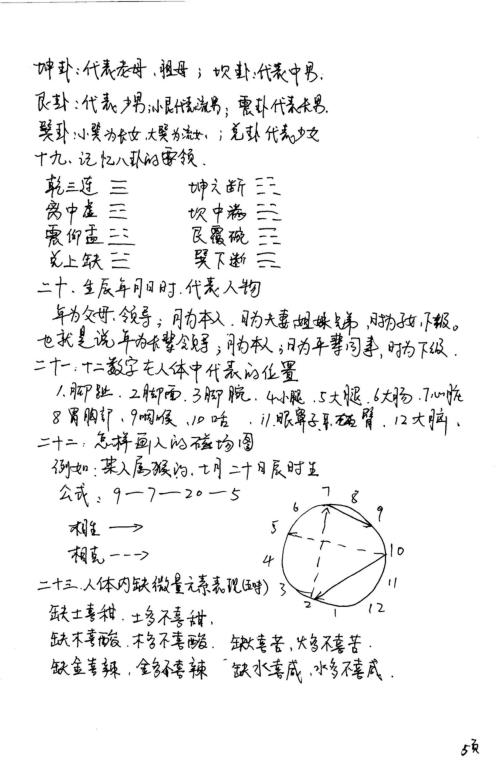 坤卦:代表老母、祖母；坎卦:代表中男.
艮卦:代表少男;小艮代表流男；震卦代表长男.
巽卦:小巽为长女.大巽为流女.；兑卦代表少女
十九、记忆八卦的要领.
乾三连 ☰ 坤六断 ☷
离中虚 ☲ 坎中满 ☵
震仰盂 ☳ 艮覆碗 ☶
兑上缺 ☱ 巽下断 ☴
二十、生辰年月日时.代表人物
年为父母.领导；月为本人.日为夫妻姐妹兄弟,时为子女.下级。
也就是说年为长辈领导；月为本人；日为平辈同事,时为下级.
二十一.十二数字在人体中代表的位置
1.脚趾.2脚面.3脚腕.4小腿.5大腿.6大肠.7心脏
8胃胸部.9咽喉.10舌.11.眼鼻子耳臂.12大脑.
二十二:怎样画人的磁场图
例如:某人属猴的.七月二十日辰时生
公式:9—7—20—5
相生 →
相克 --→
7 8 9 10 11 12 1 2 3 4 5 6
二十三.人体内缺微量元素表现
缺土喜甜.土多不喜甜.
缺木喜酸.木多不喜酸.缺火喜苦,火多不喜苦.
缺金喜辣,金多不喜辣 缺水喜咸,水多不喜咸.
5页